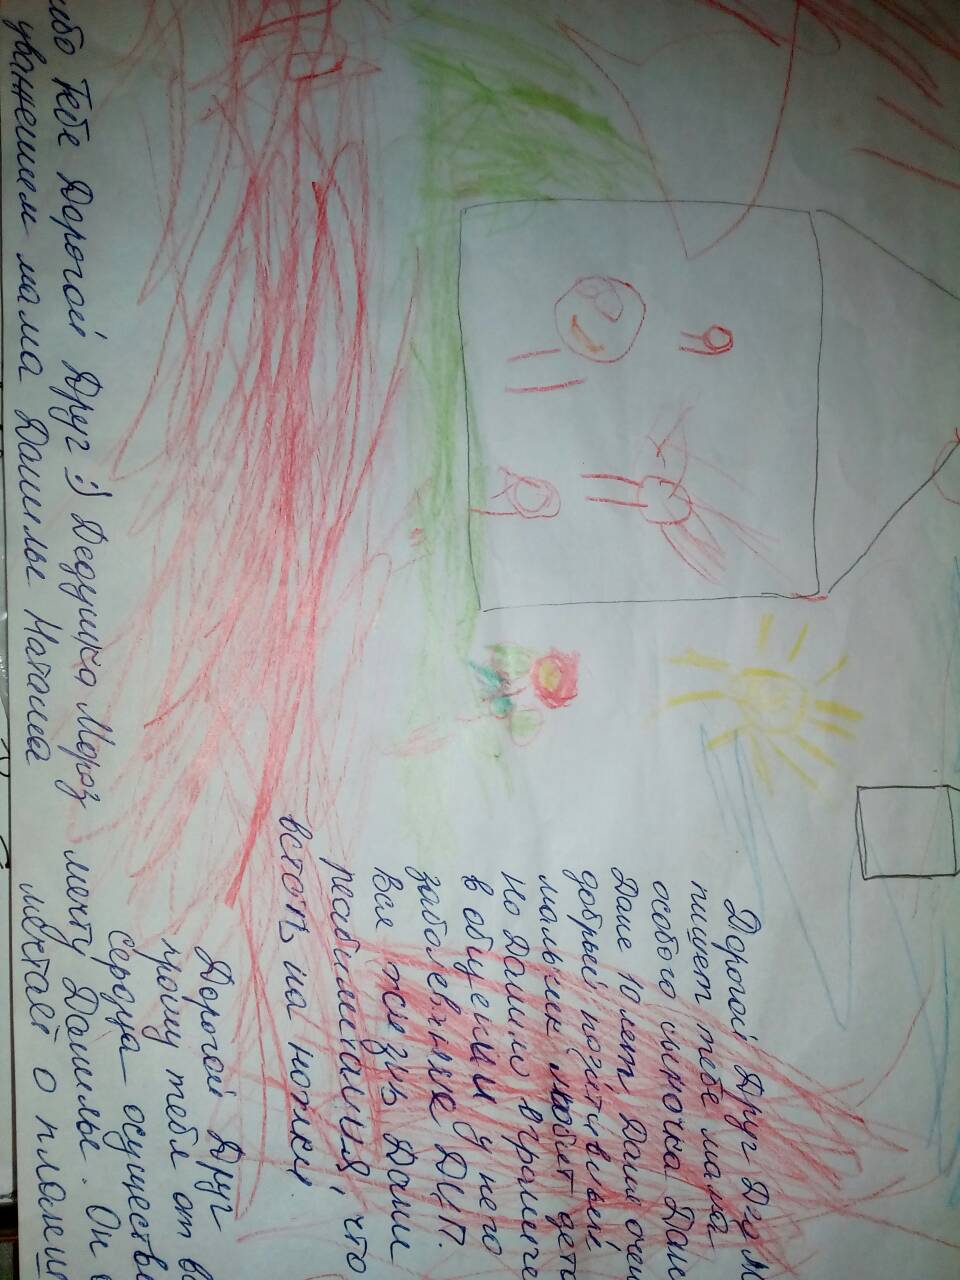 Дорогой Друг Дед М
пишет тебе мама
особого сыночка
Дане 10 лет. Даня очен
добрый, позитивный
мальчик любит дет
Но Данило ограниче
в общении у него
заболевание ДЦП.
Вся жизнь Дани
реабилитация, что
встать на ножки
Дорогой Друг
прошу тебя от в
сердца осуществи
мечту Данилы. Он
мечтает о планш
ибо Тебе Дорогой Друг :) Дедушка Мороз
уважением мама Данилы Наталья